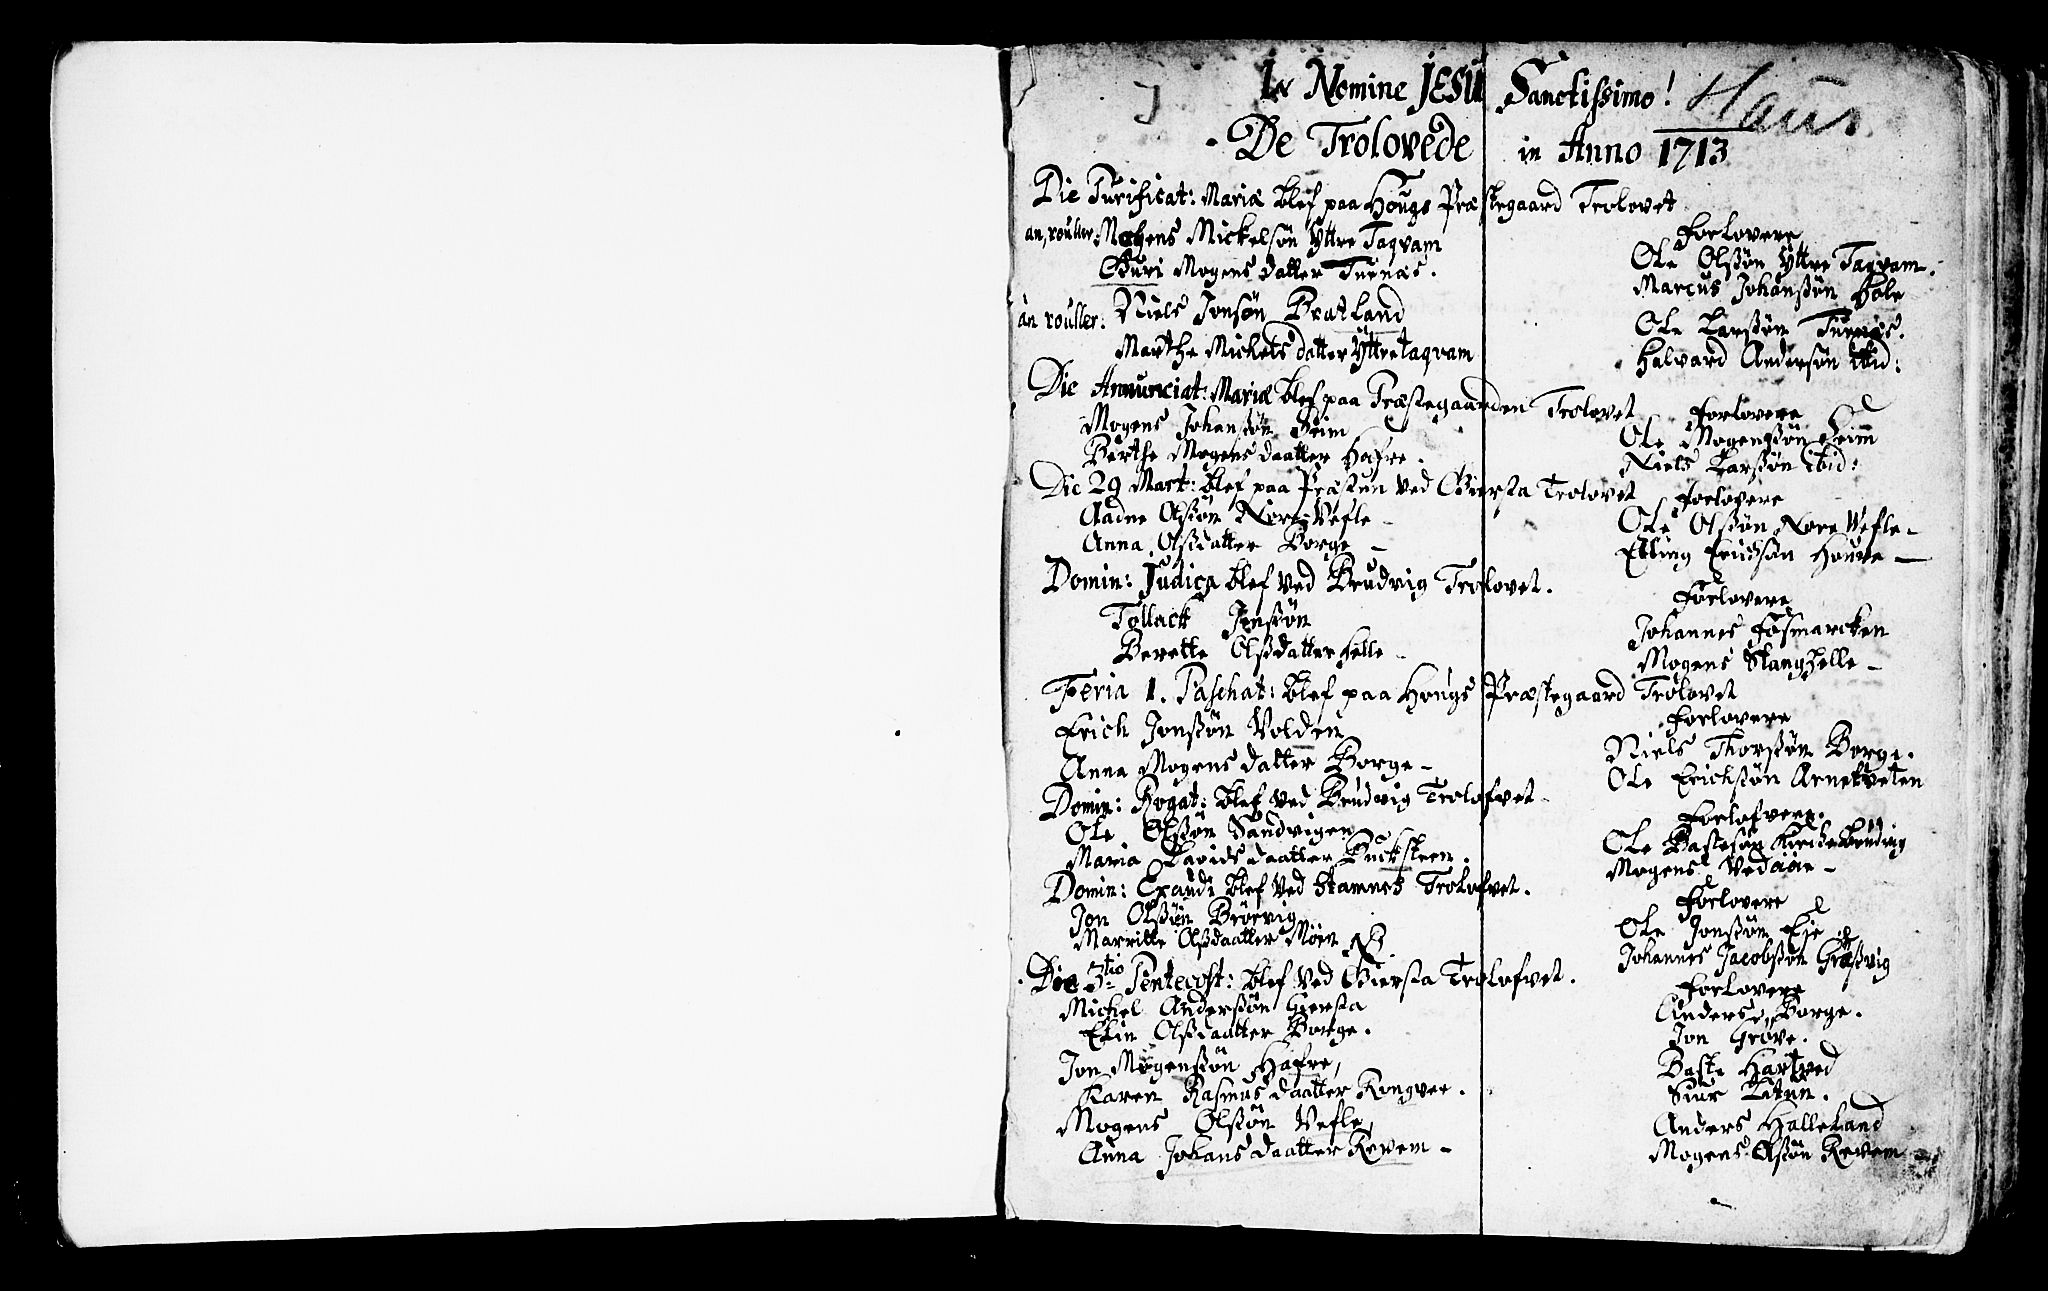 In Nomine JESU Sanctissimo!
Haus
De Trolovede in Anno 1713
Die Purificat: Mariæ blef paa Hougs Præstegaard Trolovet
Mogens Mickelsøn Yttre Taqvam
Guri Mogens datter Turnæs.
Forlovere
Ole Olssøn Yttre Taqvam.
Marcus Johanssøn Hole
Niels Jonsøn Bratland
Marthe Michels datter Yttre taqvam
Ole Larssøn Turnæs.
Halvard Andersøn ibid:
Die Annunciat: Mariæ blef paa Præstegaarden Trolovet
Mogens Johanssøn Seim
Birthe Mogens daatter Hafre.
Forlovere
Ole Mogenssøn Seim
Niels Larssøn ibid:
Die 29 Mart: blef paa Præstun ved Giersta Trolovet
Aadne Olssøn Nore Vefle
Anna Olssdatter Borge
forlovere
Ole Olssøn Nore Vefle
Elling Erichsøn Houge
Domin: Judica blef ved Brudvig Trolovet.
Tollack Jenssøn
Berette Olssdatter Helle
Forlovere
Johannes Fosmarcken
Mogens Stanghelle
Feria 1. Paschat: blef paa Hougs Præstegaard Trolovet
Erich Jonssøn Volden
Anna Mogens datter Borge
forlovere
Niels Thorssøn Borge.
Ole Erichssøn Arnetveten
Domin: Rogat: blef ved Brudvig Trolofvet
Ole Olssøn Sandvigen
Maria Davids daatter Bucksteen.
Forlofvere.
Ole Bastesøn Kircke Brudvig
Mogens Vedaaie
Domin: Exaudi blef ved Stamnes Trolofvet.
Jon Olssøn Brørvig
Marritte Olssdaatter Møen
Forlovere
Ole Jonssøn Eje
Johannes Jacobssøn Græsvig
Die 3tio Pentecost: blef ved Giersta Trolofvet.
Michel Anderssøn Giersta
Elin Olssdaatter Borge.
Forlovere
Anders Borge.
Jon Grove.
Jon Mogenssøn Hafre,
Karen Rasmus daatter Rongvee.
Baste Hartved
Siur Titun.
Mogens Olssøn Vefle,
Anna Johans daatter Revem
Anders Halleland
Mogens Olssøn Revem